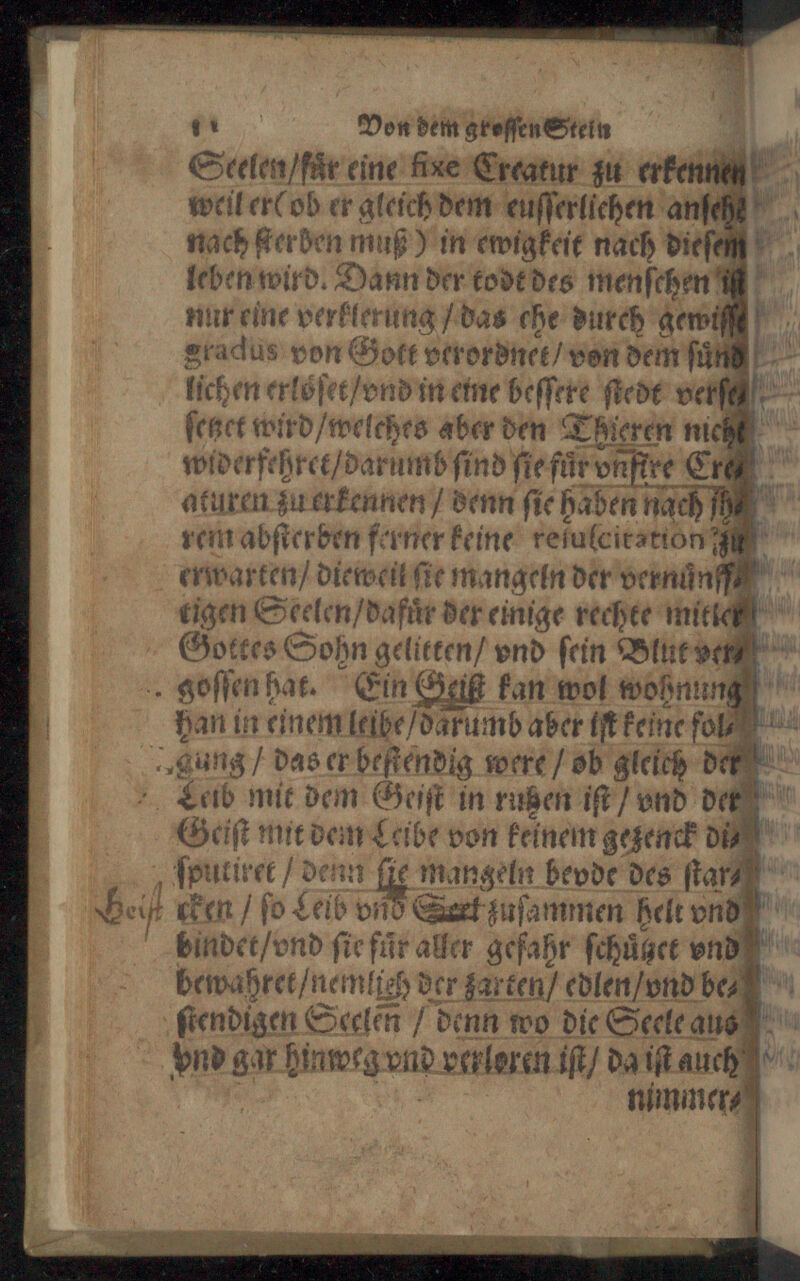 Von dem grossen Stein
Seelen/für eine fixe Creatur zu erkennen
weil er( ob er gleich dem eusserlichen anseh⸗
nach sterben muß ) in ewigkeit nach diesem
leben wird. Dann der todt des menschen ist
nur eine verklerung / das ehe durch gewisse
gradus von Gott verordnet/ von dem sünd⸗
lichen erlöset/vnd in eine bessere stedt verse⸗
setzet wird/welches aber den Thieren nicht
widerfehret/darumb sind sie für vnfixe Cre⸗
aturen zu erkennen / denn sie haben nach ih⸗
rem absterben ferner keine resuscitation zu
erwarten/ dieweil sie mangeln der vernünff⸗
tigen Seelen/dafür der einige rechte mitler
Gottes Sohn gelitten/ vnd sein Blut ver⸗
gossen hat. Ein Geist kan wol wohnung
han in einem leibe/darumb aber ist keine fol⸗
gung / das er bestendig were / ob gleich der
Leib mit dem Geist in ruhen ist / vnd der
Geist mit dem Leibe von keinem gezenck di⸗
sputiret / denn sie mangeln beyde des star⸗
Geist cken / so Leib vnd Seel zusammen helt vnd
bindet/vnd sie für aller gefahr schützet vnd
bewahret/nemlich der zarten/ edlen/vnd be⸗
stendigen Seelen / denn wo die Seele aus
vnd gar hinweg vnd verloren ist/ da ist auch
nimmer⸗